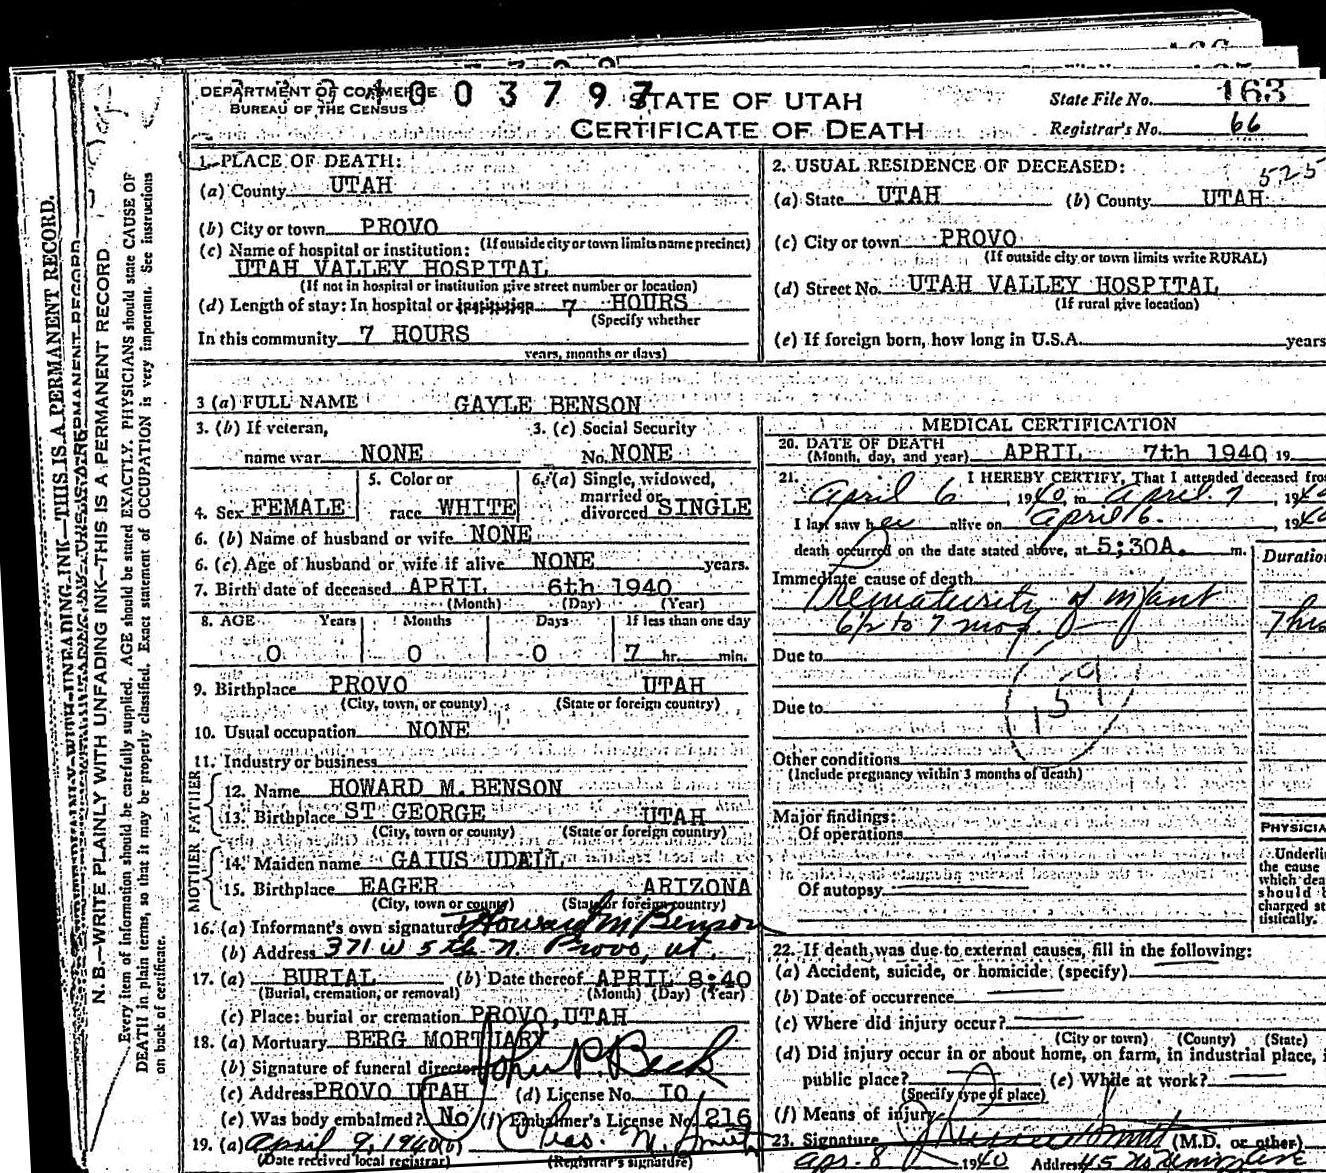 DEPARTMENT OF COMMERCE
BUREAU OF THE CENSUS
1003797
STATE OF UTAH
CERTIFICATE OF DEATH
State File No. 163
Registrar's No. 66
1. PLACE OF DEATH:
(a) County UTAH
(b) City or town PROVO
(If outside city or town limits name precinct)
(c) Name of hospital or institution:
UTAH VALLEY HOSPITAL
(If not in hospital or institution give street number or location)
(d) Length of stay: In hospital or institution 7 HOURS
(Specify whether
In this community 7 HOURS
years, months or days)
2. USUAL RESIDENCE OF DECEASED:
525
(a) State UTAH (b) County UTAH
(c) City or town PROVO
(If outside city or town limits write RURAL)
(d) Street No. UTAH VALLEY HOSPITAL
(If rural give location)
(e) If foreign born, how long in U.S.A. years
3 (a) FULL NAME GAYLE BENSON
3. (b) If veteran,
name war NONE
3. (c) Social Security
No. NONE
4. Sex FEMALE
5. Color or
race WHITE
6. (a) Single, widowed,
married or
divorced SINGLE
6. (b) Name of husband or wife NONE
6. (c) Age of husband or wife if alive NONE years.
7. Birth date of deceased APRIL 6th 1940
(Month) (Day) (Year)
8. AGE Years Months Days If less than one day
0 0 0 7 hr. min.
9. Birthplace PROVO UTAH
(City, town, or county) (State or foreign country)
10. Usual occupation NONE
11. Industry or business
FATHER
12. Name HOWARD M. BENSON
13. Birthplace ST GEORGE UTAH
(City, town or county) (State or foreign country)
MOTHER
14. Maiden name GAIUS UDALL
15. Birthplace EAGER ARIZONA
(City, town or county) (State or foreign country)
16. (a) Informant's own signature Howard M Benson
(b) Address 371 W 5th N. Provo, ut.
17. (a) BURIAL (b) Date thereof APRIL 8;40
(Burial, cremation, or removal) (Month) (Day) (Year)
(c) Place: burial or cremation PROVO, UTAH
18. (a) Mortuary BERG MORTUARY
(b) Signature of funeral director John P. Beck
(c) Address PROVO UTAH (d) License No. IO
(e) Was body embalmed? No (f) Embalmer's License No. 216
19. (a) April 9, 1940 (b) Chas. N. Smith
(Date received local registrar) (Registrar's signature)
MEDICAL CERTIFICATION
20. DATE OF DEATH
(Month, day, and year) APRIL 7th 1940 19
21. I HEREBY CERTIFY, That I attended deceased from
April 6, 1940, to April 7, 1940
I last saw her alive on April 6, 1940
death occurred on the date stated above, at 5;30A. m.
Duration
Immediate cause of death
Prematurity of infant
6 1/2 to 7 mos. 7 hrs
Due to
159
Due to
Other conditions
(Include pregnancy within 3 months of death)
Major findings:
Of operations
Of autopsy
PHYSICIA
Underlin
the cause
which dea
should b
charged st
tistically.
22. If death was due to external causes, fill in the following:
(a) Accident, suicide, or homicide (specify)
(b) Date of occurrence
(c) Where did injury occur?
(City or town) (County) (State)
(d) Did injury occur in or about home, on farm, in industrial place, i
public place? (e) While at work?
(Specify type of place)
(f) Means of injury
23. Signature (M.D. or other)
Apr. 8 1940 Address
N. B.—WRITE PLAINLY WITH UNFADING INK—THIS IS A PERMANENT RECORD
Every item of information should be carefully supplied. AGE should be stated EXACTLY. PHYSICIANS should state CAUSE OF
DEATH in plain terms, so that it may be properly classified. Exact statement of OCCUPATION is very important. See instructions
on back of certificate.